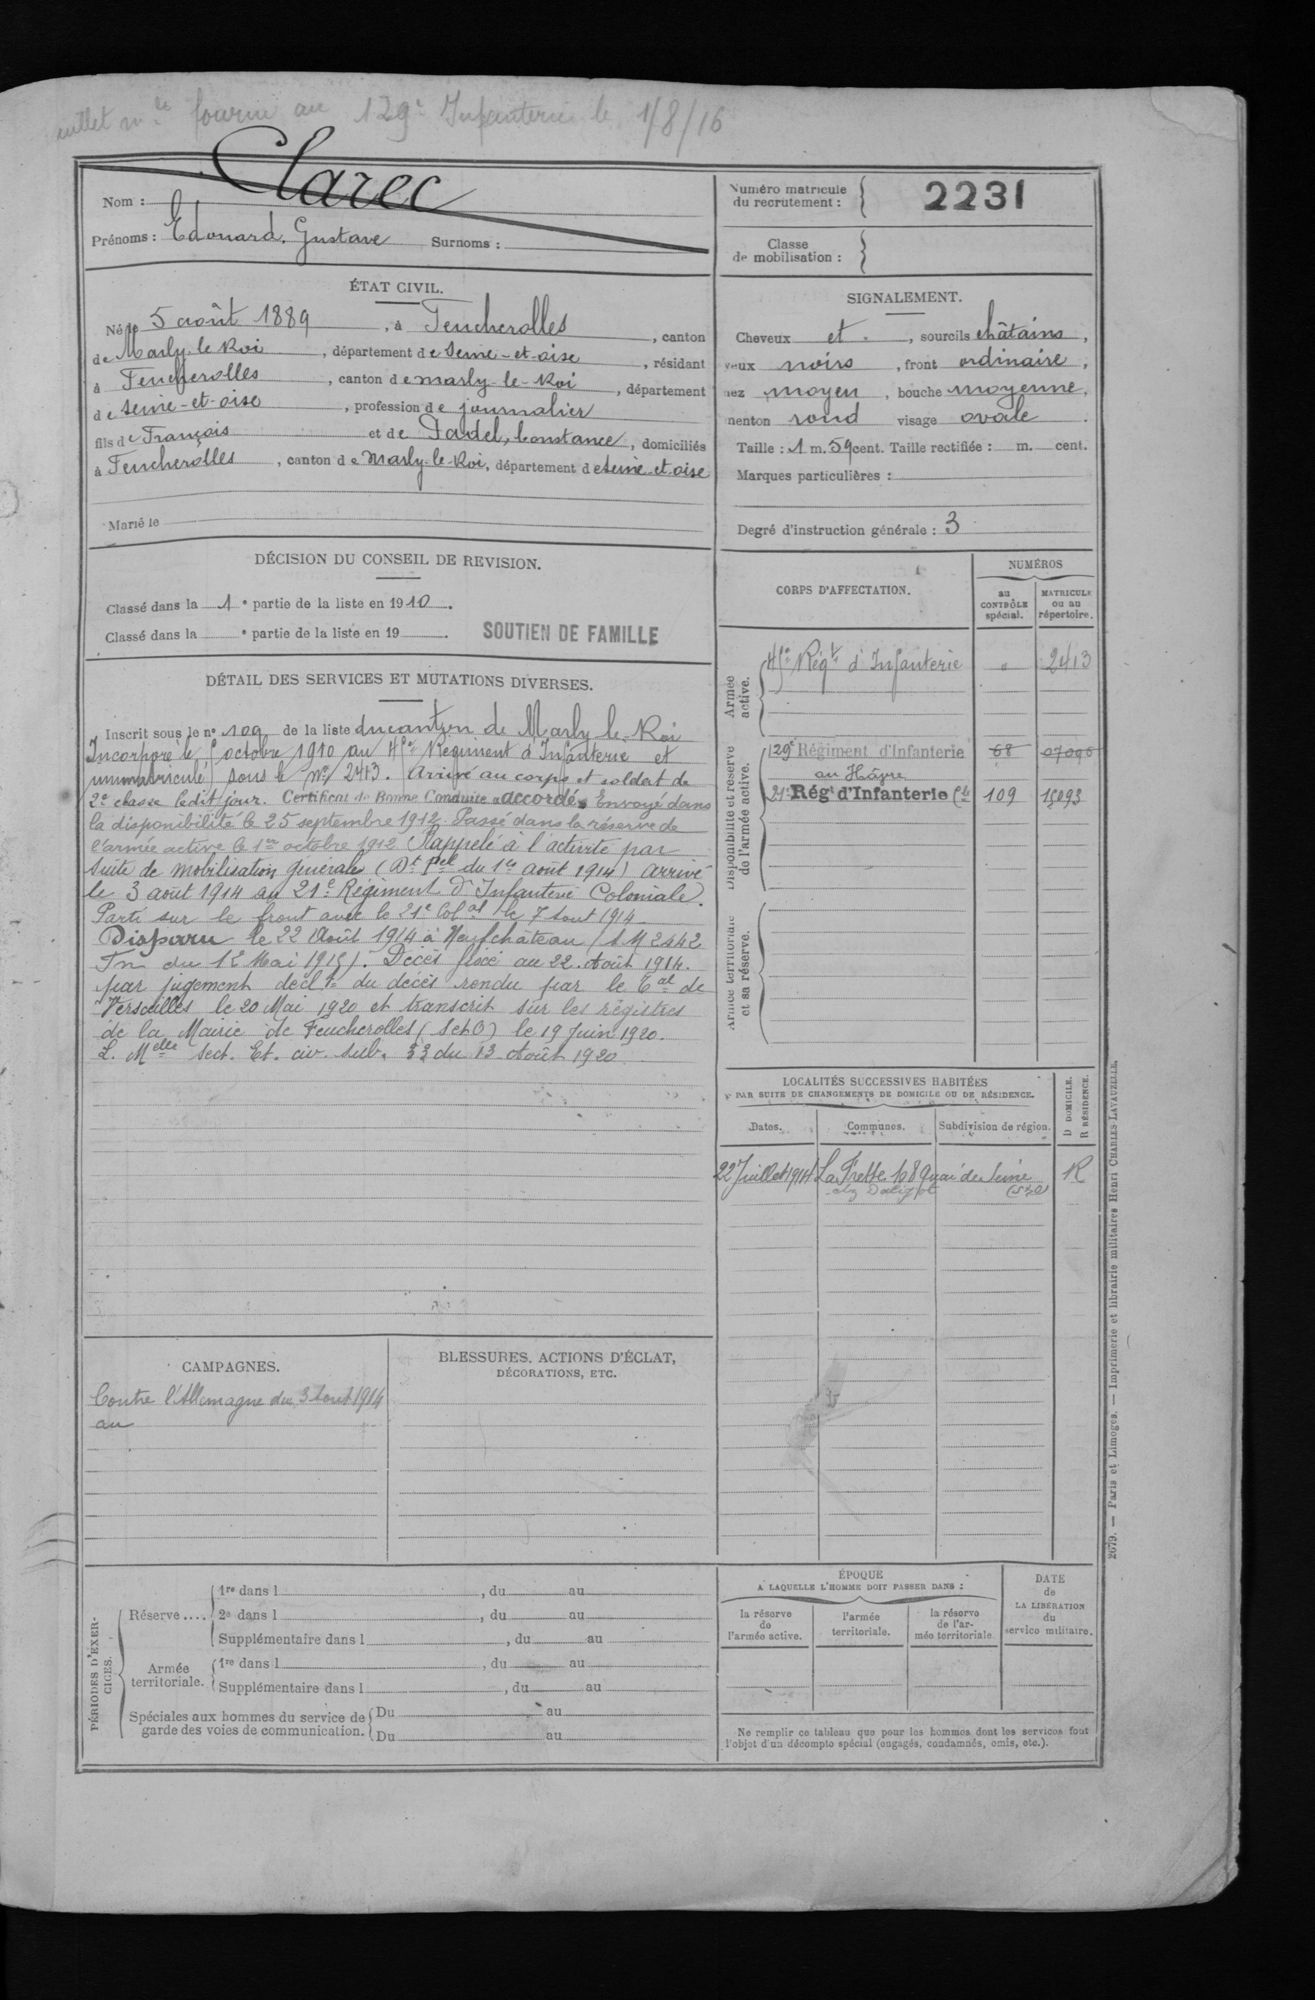 fourni au 129e Infanterie le 1/8/16
Nom : Clarec
Prénoms : Edouard, Gustave Surnoms :
Numéro matricule du recrutement : 2231
Classe de mobilisation :
ÉTAT CIVIL.
Né le 5 août 1889, à Feucherolles, canton
de Marly-le-Roi, département de Seine-et-oise, résidant
à Feucherolles, canton de Marly-le-Roi, département
de Seine-et-oise, profession de journalier
fils de François et de Padel, Constance, domiciliés
à Feucherolles, canton de Marly-le-Roi, département de Seine-et-oise
Marié le
SIGNALEMENT.
Cheveux et, sourcils châtains,
yeux noirs, front ordinaire,
nez moyen, bouche moyenne,
menton rond visage ovale.
Taille : 1 m. 59 cent. Taille rectifiée : m. cent.
Marques particulières :
Degré d'instruction générale : 3
DÉCISION DU CONSEIL DE REVISION.
Classé dans la 1e partie de la liste en 1910.
Classé dans la e partie de la liste en 19 .
SOUTIEN DE FAMILLE
DÉTAIL DES SERVICES ET MUTATIONS DIVERSES.
Inscrit sous le no 109 de la liste du canton de Marly-le-Roi
Incorporé le octobre 1910 au Régiment d'Infanterie et
immatriculé sous le No 2413. Arrivé au corps et soldat de
2e classe ledit jour. Certificat de Bonne Conduite accordé. Envoyé dans
la disponibilité le 25 septembre 1912. Passé dans la réserve de
l'armée active le 1er octobre 1912. Rappelé à l'activité par
suite de mobilisation générale (Dt Pel du 1er août 1914) arrivé
le 3 août 1914 au 21e Régiment d'Infanterie Coloniale.
Parti sur le front avec le 21e Colal le 7 Aout 1914
Disparu le 22 Août 1914 à Neufchâteau (A M 2442
Tn du 12 Mai 1915). Décès fixé au 22 Août 1914.
par jugement déclf du décès rendu par le Tal de
Versailles le 20 Mai 1920 et transcrit sur les régistres
de la Mairie de Feucherolles (S et O) le 19 Juin 1920.
L. Melle Sect. Et. civ. Sub. 33 du 13 Août 1920
CORPS D'AFFECTATION.
NUMÉROS
au CONTRÔLE spécial.
MATRICULE ou au répertoire.
Armée active.
Régt d'Infanterie " 2413
Disponibilité et réserve de l'armée active.
129e Régiment d'Infanterie 68
au Hâvre
21e Rég.t d'Infanterie Cle 109 15093
Armée territoriale et sa réserve.
LOCALITÉS SUCCESSIVES HABITÉES
PAR SUITE DE CHANGEMENTS DE DOMICILE OU DE RÉSIDENCE.
D DOMICILE.
R RÉSIDENCE.
Dates. Communes. Subdivision de région.
22 Juillet 1914 La Frette 108 Quai de Seine R
CAMPAGNES.
Contre l'Allemagne du 3 Aout 1914
au
BLESSURES, ACTIONS D'ÉCLAT,
DÉCORATIONS, ETC.
PÉRIODES D'EXERCICES.
Réserve....
1re dans l , du au
2e dans l , du au
Supplémentaire dans l , du au
Armée territoriale.
1re dans l , du au
Supplémentaire dans l , du au
Spéciales aux hommes du service de
garde des voies de communication.
Du au
Du au
ÉPOQUE
A LAQUELLE L'HOMME DOIT PASSER DANS :
la réserve de l'armée active.
l'armée territoriale.
la réserve de l'armée territoriale.
DATE de LA LIBÉRATION du service militaire.
Ne remplir ce tableau que pour les hommes dont les services font
l'objet d'un décompte spécial (engagés, condamnés, omis, etc.).
2679. — Paris et Limoges. — Imprimerie et librairie militaires Henri CHARLES-LAVAUZELLE.